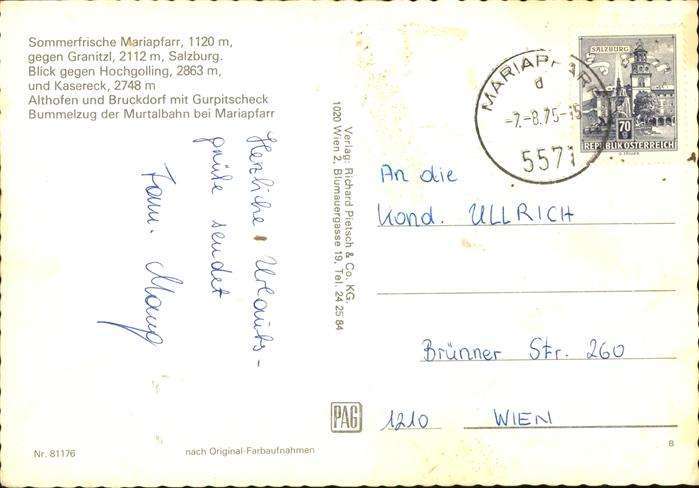 Sommerfrische Mariapfarr, 1120 m,
gegen Granitzl, 2112 m, Salzburg.
Blick gegen Hochgolling, 2863 m,
und Kasereck, 2748 m
Althofen und Bruckdorf mit Gurpitscheck
Bummelzug der Murtalbahn bei Mariapfarr
Herzliche Urlaubs-
grüße sendet
Fam.
Verlag: Richard Pietsch & Co. KG.
1020 Wien 2, Blumauergasse 19, Tel. 24 25 84
MARIAPFARR
d
-7.-8.75-15
5571
SALZBURG
70
REPUBLIK ÖSTERREICH
An die
Kond. ULLRICH
Brünner Str. 260
1210 WIEN
PAG
Nr. 81176
nach Original-Farbaufnahmen
B